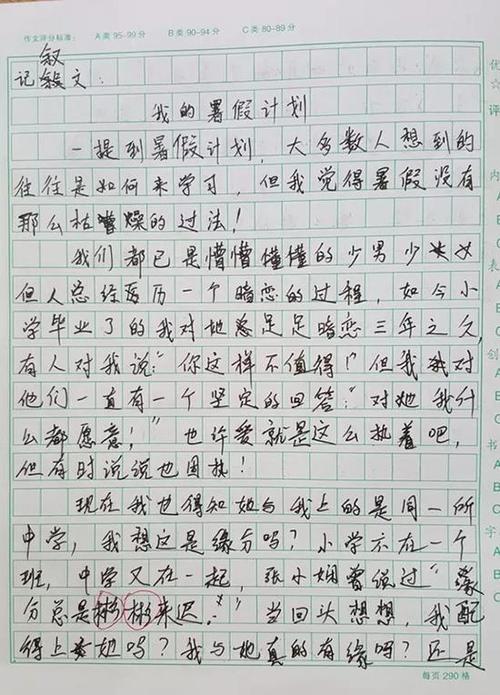 作文评分标准： A类 95-99分 B类 90-94分 C类 80-89分 优
叙 ☆
记叙文： 评
我的暑假计划
一提到暑假计划，大多数人想到的
往往是如何来学习，但我觉得暑假没有 内
那么枯燥的过法！ A
我们都已是懵懵懂懂的少男少女 B
但人总经历历一个暗恋的过程，如今小 表
学毕业了的我对她足足暗恋三年之久， A
有人对我说：“你这样不值得！”但我对 创
他们一直有一个坚定的回答：“对她我什
么都愿意！”也许爱就是这么执着吧， 书
但有时说说也固执！ A
现在我也得知她与我上的是同一所
中学，我想这是缘分吗？小学不在一个 字
班，中学又在一起，张小娴曾说过“缘
分总是彬彬来迟。”当回头想想，我配
得上她吗？我与她真的有缘吗？还是
每页 290 格